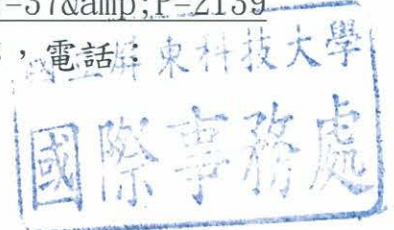 -37&amp;P=2139
，電話：
國立屏東科技大學
國際事務處